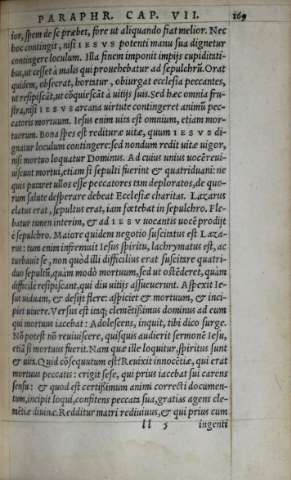 PARAPHR. CAP. VII. 169
ior, spem de se præbet, fore ut aliquando fiat melior. Nec
hoc contingit, nisi IESVS potenti manu sua dignetur
contingere loculum. Illa finem imponit impijs cupiditati-
bus, ut cesset à malis qui prouehebatur ad sepulchrũ. Orat
quidem, obsecrat, hortatur, obiurgat ecclesia peccantes,
ut resipiscãt, ut cõquiescãt à uitijs suis. Sed hæc omnia fru-
stra, nisi IESVS arcana uirtute contingeret animũ pec-
catoris mortuum. Iesus enim uita est omnium, etiam mor-
tuorum. Bona spes est redituræ uitæ, quum IESVS di-
gnatur loculum contingere: sed nondum redit uitæ uigor,
nisi mortuo loquatur Dominus. Ad cuius unius uocẽ reui-
uiscunt mortui, etiam si sepulti fuerint & quatriduani: ne
quis putaret ullos esse peccatores tam deploratos, de quo-
rum salute desperare debeat Ecclesiæ charitas. Lazarus
elatus erat, sepultus erat, iam fœtebat in sepulchro. Fle-
batur tamen interim, & ad IESV uocantis uocẽ prodijt
è sepulchro. Maiore quidem negotio suscitatus est Laza-
rus: tum enim infremuit Iesus spiritu, lachrymatus est, ac
turbauit se, non quòd illi difficilius erat suscitare quatri-
duo sepultũ, quàm modò mortuum, sed ut ostẽderet, quàm
difficile resipiscant, qui diu uitijs assueuerunt. Aspexit Ie-
sus uiduam, & desijt flere: aspiciet & mortuum, & inci-
piet uiuere. Versus est itaq; clemẽtissimus dominus ad eum
qui mortuus iacebat: Adolescens, inquit, tibi dico surge.
Nõ potest nõ reuiuiscere, quisquis audierit sermonẽ Iesu,
etiã si mortuus fuerit. Nam quæ ille loquitur, spiritus sunt
& uita. Quid cõsequutum est? Reuixit innocẽtiæ, qui erat
mortuus peccatis: erigit sese, qui prius iacebat sui carens
sensu: & quod est certissimum animi correcti documen-
tum, incipit loqui, confitens peccata sua, gratias agens cle-
mẽtiæ diuinæ. Redditur matri rediuiuus, & qui prius cum
ll 5 ingenti